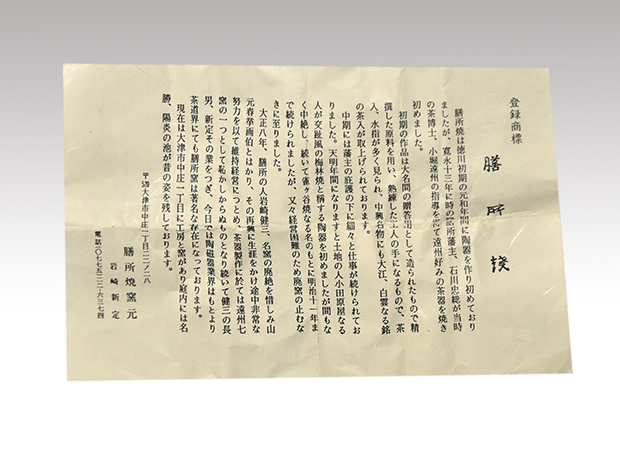 登録商標
膳所焼
膳所焼は徳川初期の元和年間に陶器を作り初めており
ましたが、寛永十三年に時の膳所藩主、石川忠総が当時
の茶博士、小堀遠州の指導を得て遠州好みの茶器を焼き
初めました。
初期の作品は大名間の贈答用として造られたもので精
撰した原料を用い、熟練した工人の手になるもので、茶
入、水指が多く見られ、中興名物にも大江、白雲なる銘
の茶入が取上げられております。
中期には藩主の庇護の下に細々と仕事が続けられてお
りました。天明年間になりますと土地の人小田原屋なる
人が交趾風の梅林焼と称する陶器を初めましたが間もな
く中絶し、続いて雀ヶ谷焼なる名のもとに明治十一年ま
で続けられましたが、又々経営困難のため廃窯の止むな
きに至りました。
大正八年、膳所の人岩崎健三、名窯の廃絶を惜しみ山
元春挙画伯とはかり、その再興に生涯をかけ途中非常な
努力を以て維持経営につとめ、茶器製作に於ては遠州七
窯の一つとして恥かしからぬものとなり続いて健三の長
男、新定その業をつぎ、今日では陶磁器業界はもとより
茶道界にても膳所窯は著名な存在になっております。
現在は大津市中庄一丁目に工房と窯があり庭内には名
勝、陽炎の池が昔の姿を残しております。
〒520大津市中庄一丁目二二ノ二八
膳所焼窯元
岩崎新定
電話〇七七五二二-六三七四